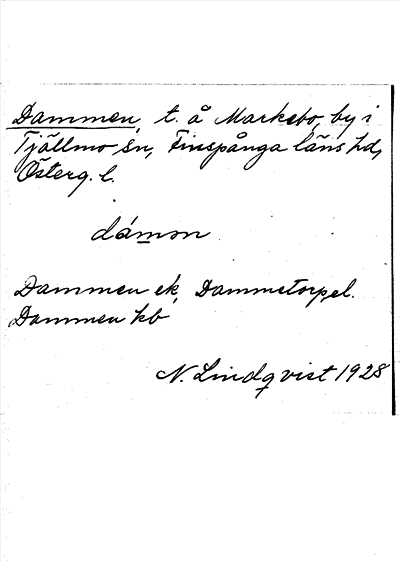 Dammen, t. å Marksbo, by i
Tjällmo sn, Finspånga läns hd,
Österg. l.
dámon
Dammen ek, Dammetorp el.
Dammen kb
N. Lindqvist 1928